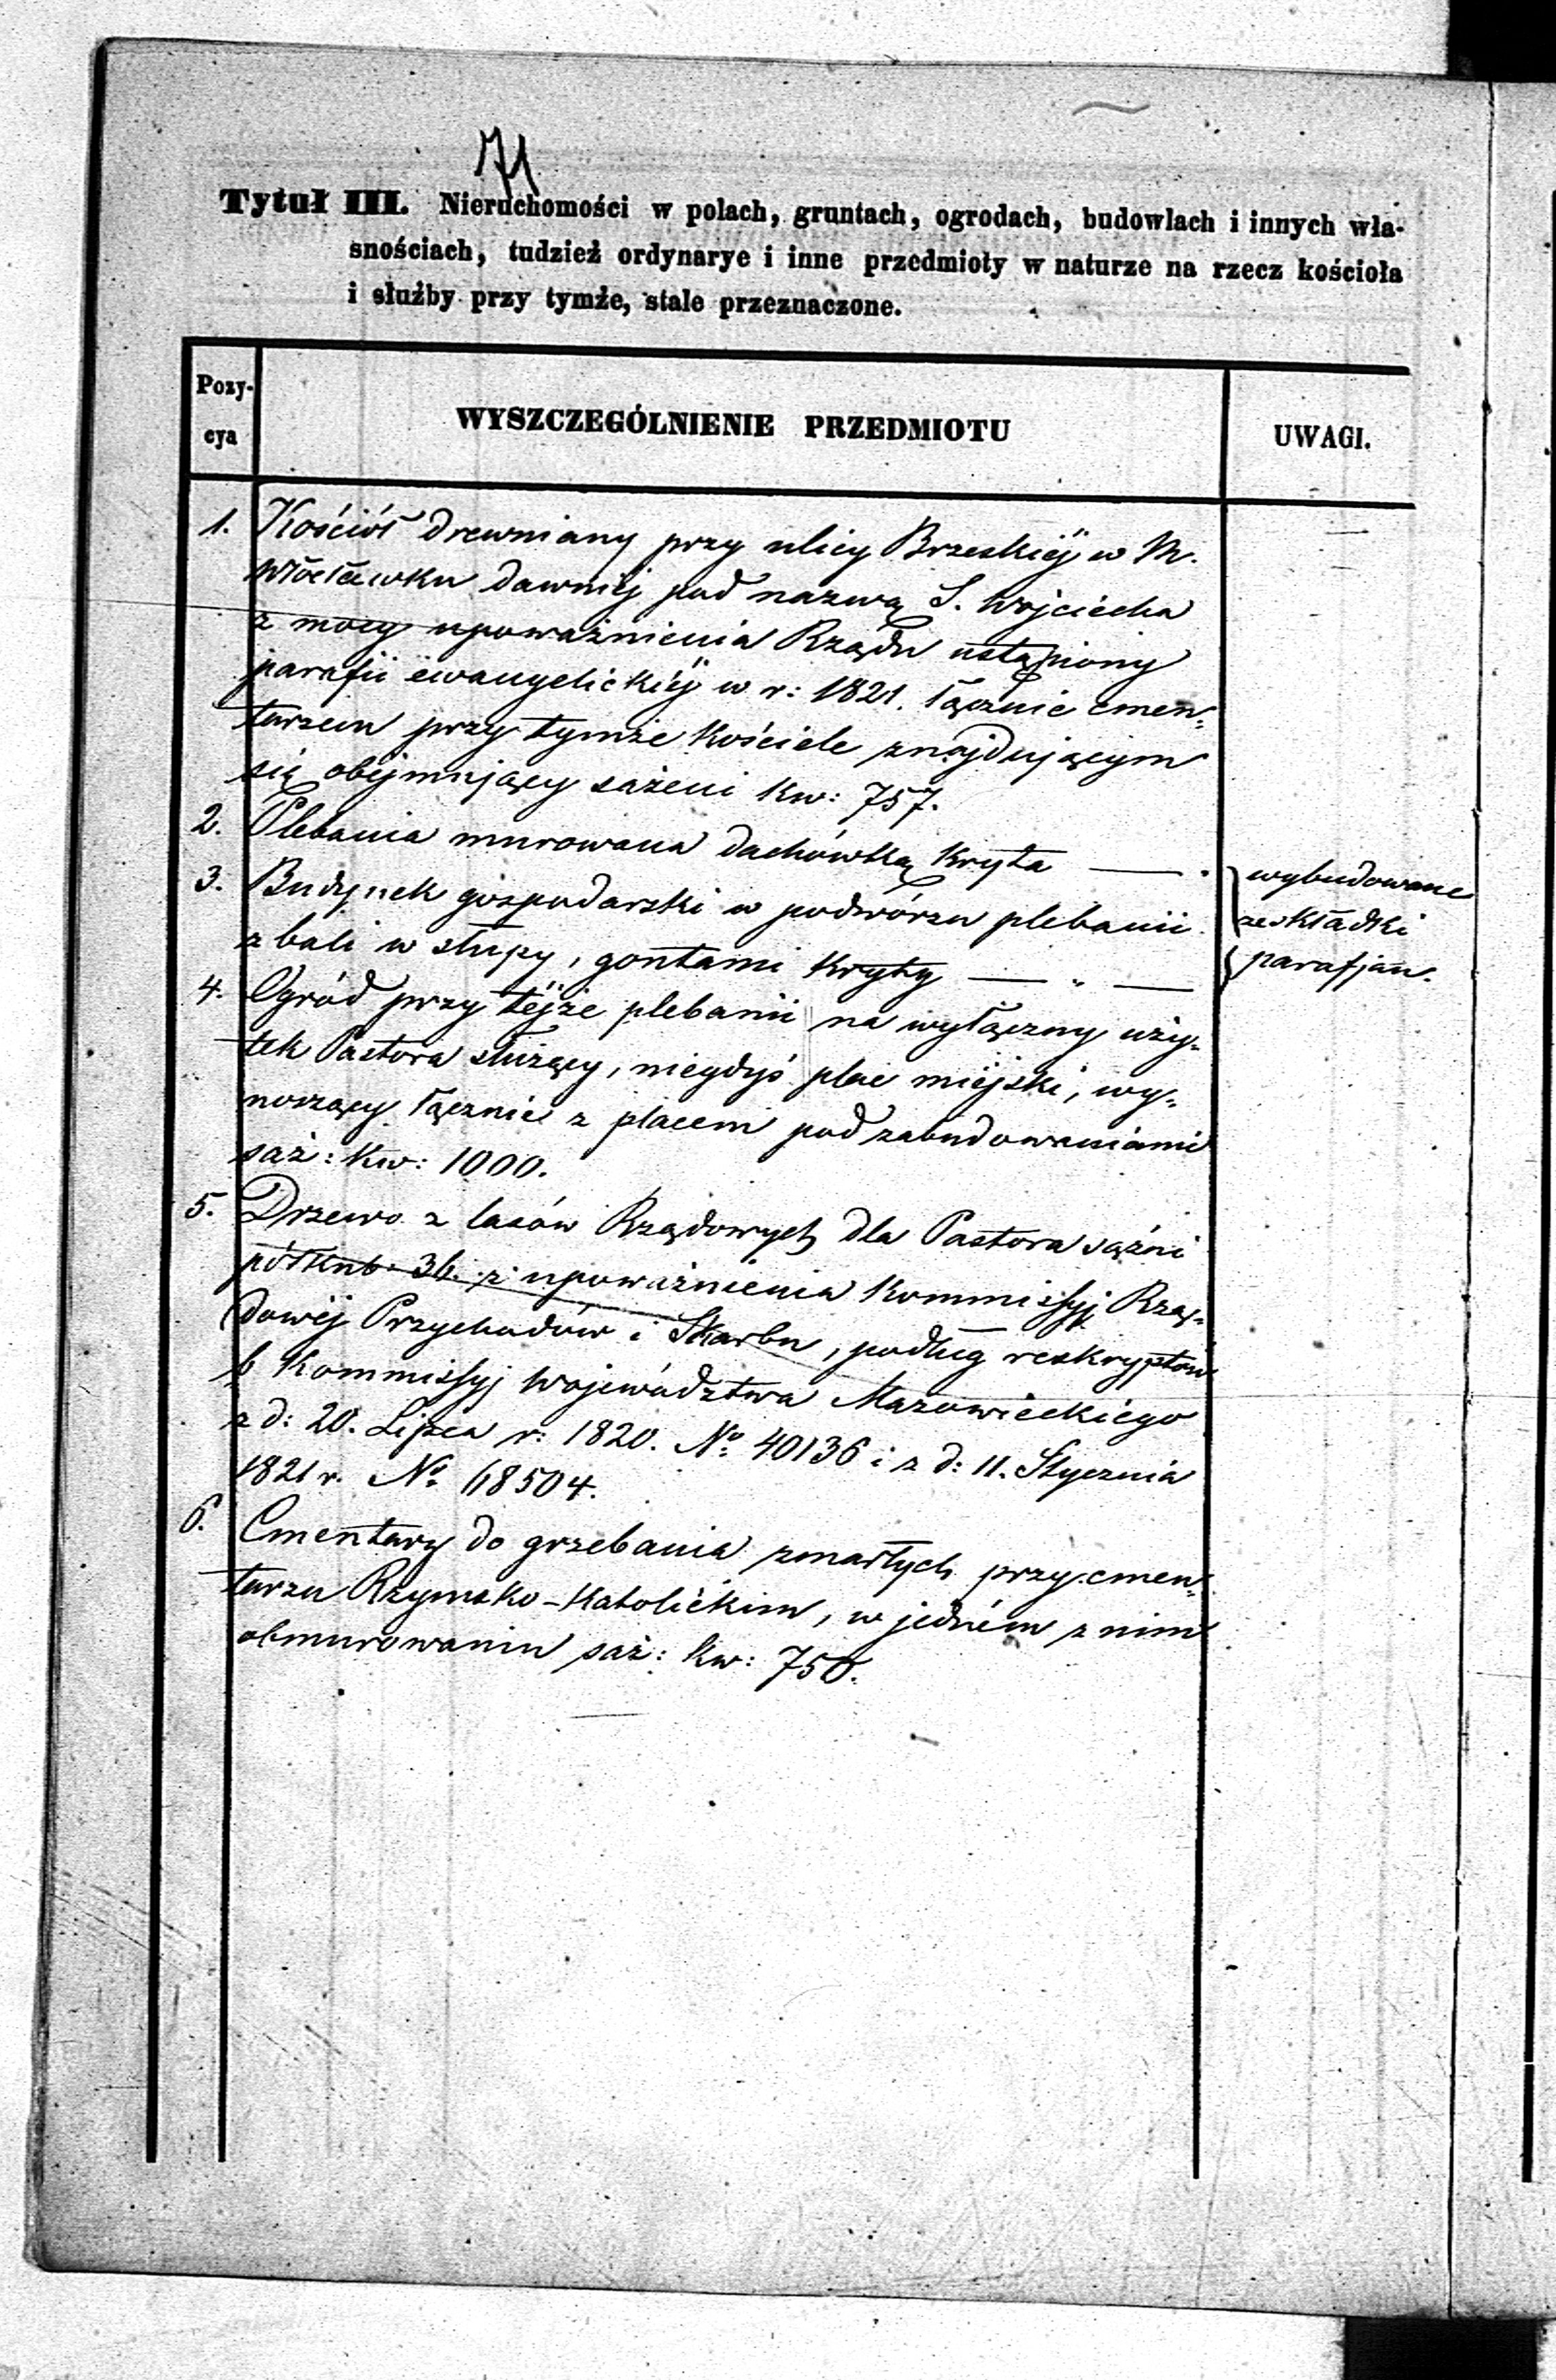 71
Tytuł III. Nieruchomości w polach, gruntach, ogrodach, budowlach i innych wła-
snościach, tudzież ordynarye i inne przedmioty w naturze na rzecz kościoła
i służby przy tymże, stale przeznaczone.
Pozy-
cya
WYSZCZEGÓLNIENIE PRZEDMIOTU
UWAGI.
1. Kościół drewniany przy ulicy Brzeskiéj w M.
Włocławku dawniéj pod nazwą S. Wojciecha
z mocy upoważnienia Rządu ustąpiony
parafii ewangelickiéj w r: 1821. łącznie cmen„
tarzem przy tymże Kościele znajdującym
się obejmujący sążeni Kw: 757.
2. Plebania murowana dachówką Kryta — .
3. Budynek gospodarski w podwórzu plebanii
z bali w słupy, gontami Kryty — „ —
wybudowane
ze składki
parafjan.
4. Ogród przy téjże plebanii na wyłączny uży„
tek Pastora służący, niegdyś plac miéjski, wy„
noszący łącznie z placem pod zabudowaniami
saż: Kw: 1000.
5. Drzewo z lasów Rządowych dla Pastora sążni
półkub. 36. z upoważnienia Kommissyj Rzą„
dowéj Przychodów i Skarbu, podług reskryptów
b Kommissyj Województwa Mazowieckiego
z d: 20. Lipca r: 1820. No 40136 i z d: 11. Stycznia
1821 r. No 68504.
6. Cmentarz do grzebania zmarłych przy cmen„
tarzu Rzymsko-Katolickim, w jedném z nim
obmurowaniu saż: Kw: 750.